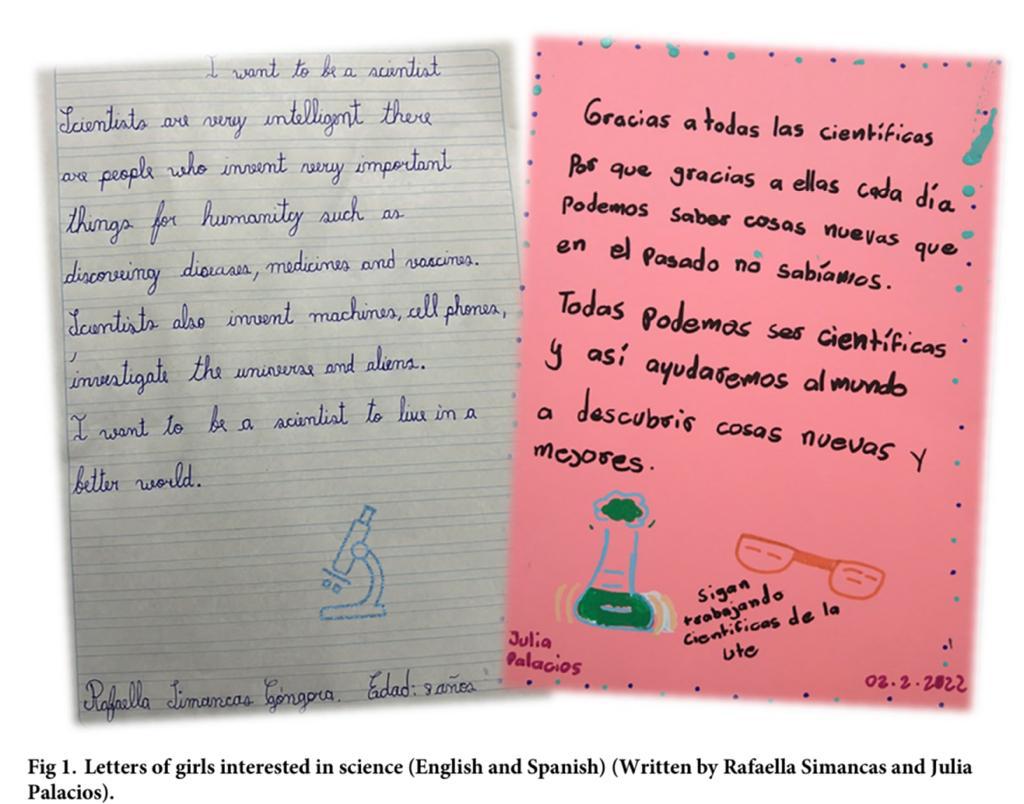 I want to be a scientist
Scientists are very intelligent there
are people who invent very important
things for humanity such as
discovering diseases, medicines and vaccines.
Scientists also invent machines, cell phones,
investigate the universe and aliens.
I want to be a scientist to live in a
better world.
Rafaella Simancas Góngora. Edad: 8 años
Gracias a todas las científicas
Por que gracias a ellas cada día
Podemos saber cosas nuevas que
en el Pasado no sabíamos.
Todas Podemos ser científicas
y así ayudaremos al mundo
a descubrir cosas nuevas y
mejores.
sigan
trabajando
científicas de la
ute
Julia
Palacios
02.2.2022
Fig 1. Letters of girls interested in science (English and Spanish) (Written by Rafaella Simancas and Julia
Palacios).